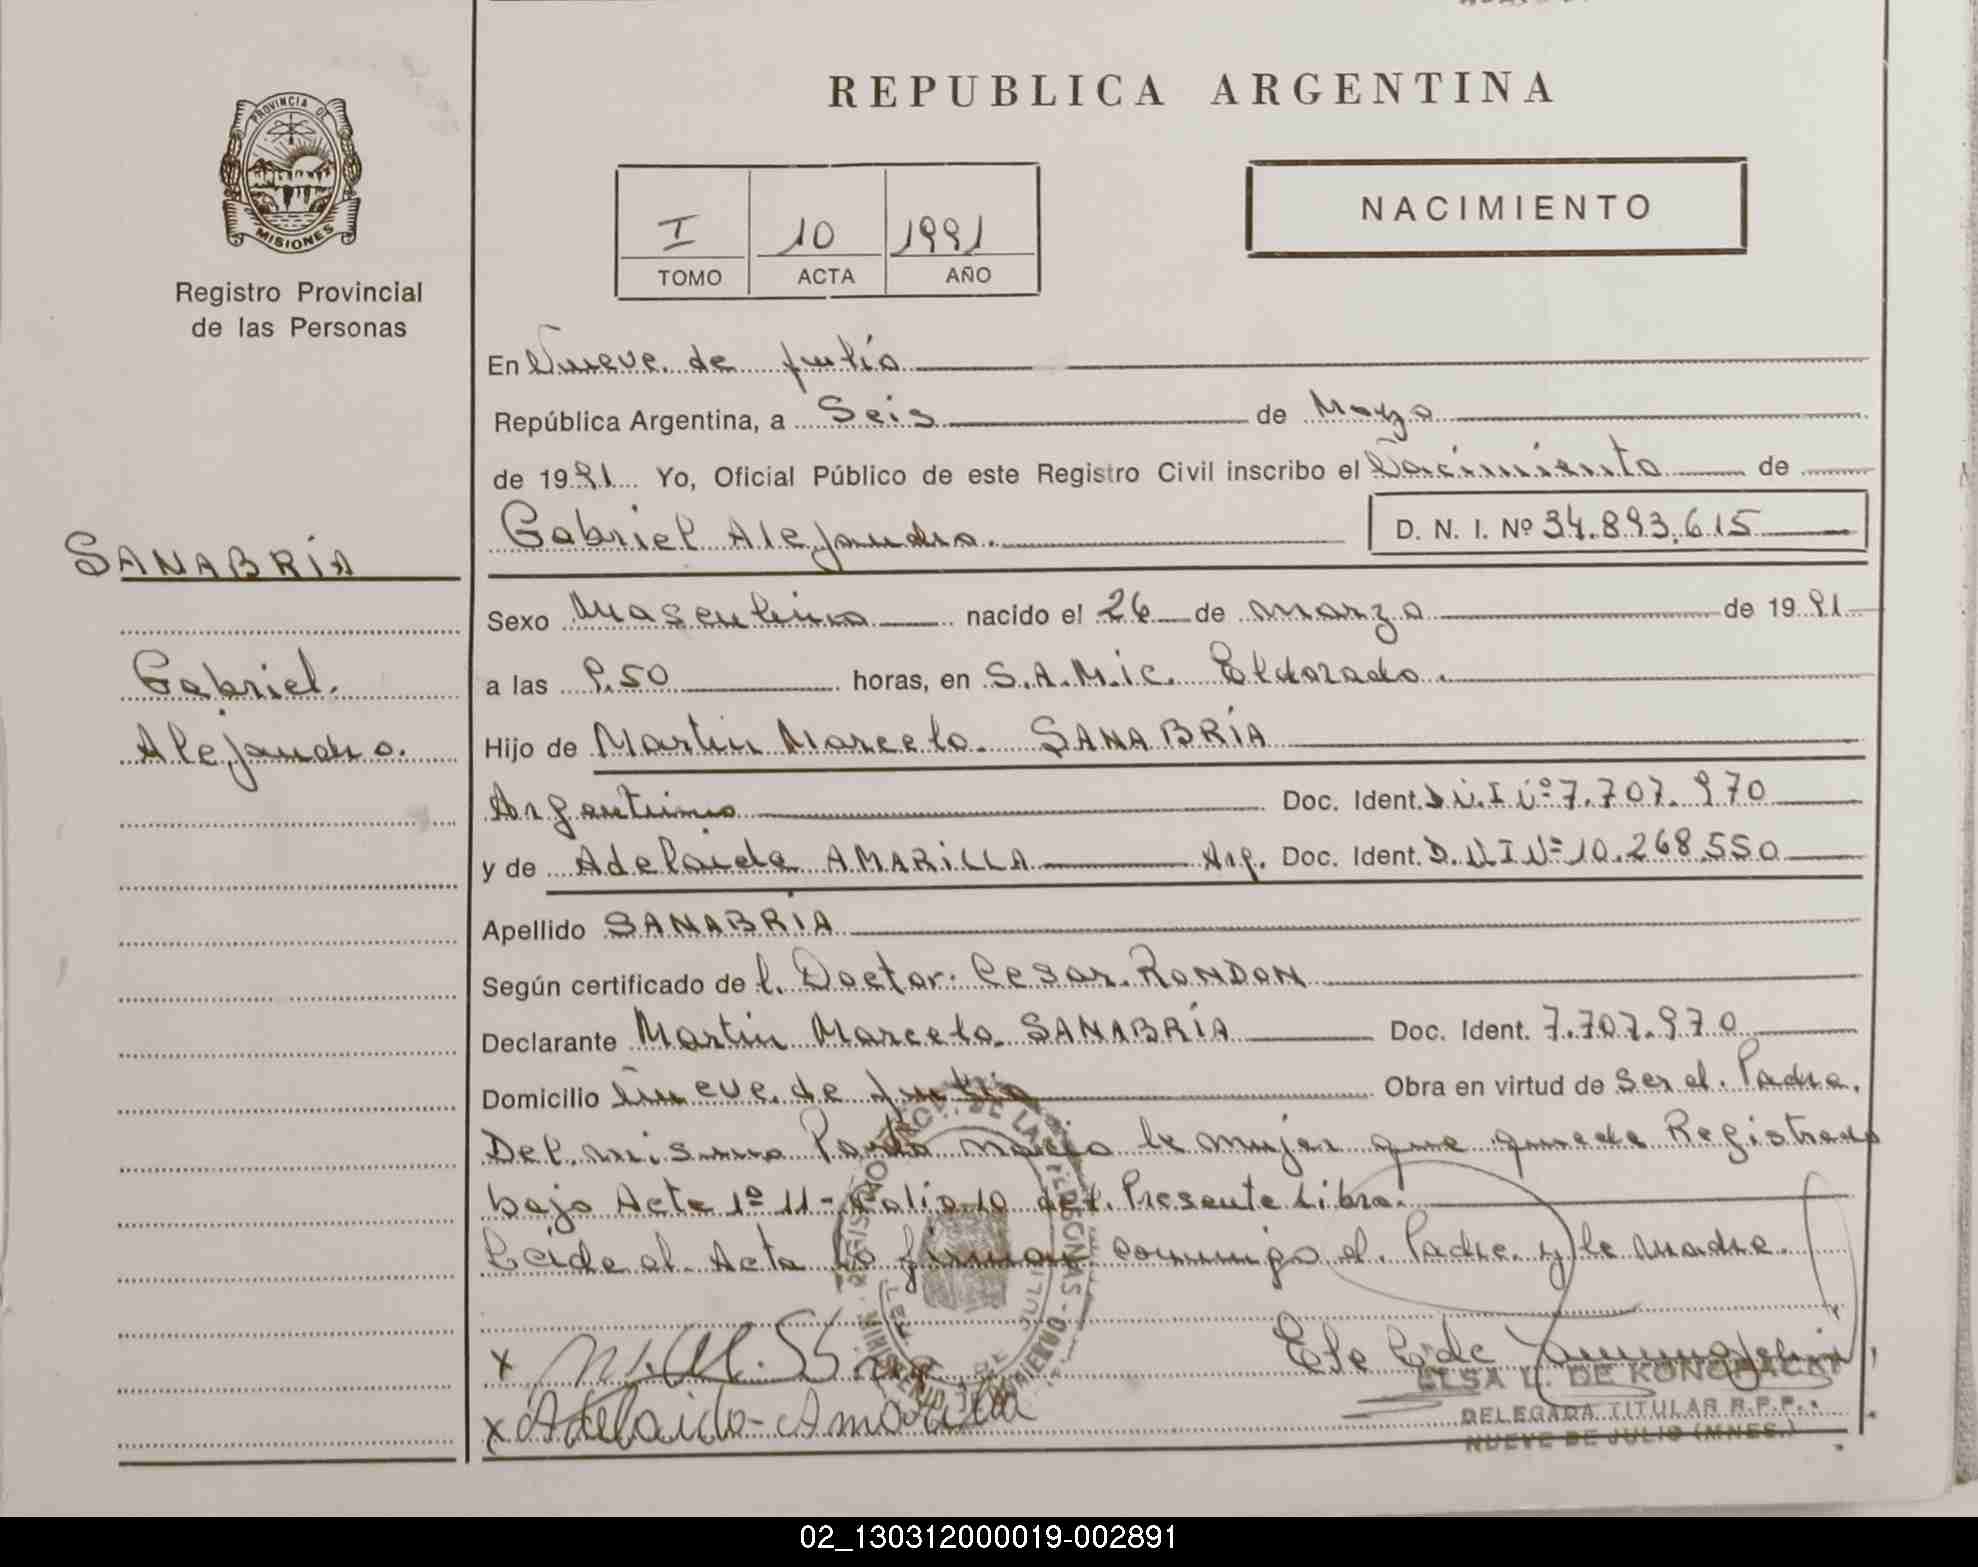 REPUBLICA ARGENTINA
PROVINCIA DE
MISIONES
Registro Provincial
de las Personas
I 10 1991
TOMO ACTA AÑO
NACIMIENTO
En Nueve de Julio
República Argentina, a Seis de Marzo
de 1991 Yo, Oficial Público de este Registro Civil inscribo el Nacimiento de
Gabriel Alejandro. D. N. I. Nº 34.893.615
SANABRÍA
Gabriel.
Alejandro.
Sexo Masculino nacido el 26 de marzo de 1991
a las 9.50 horas, en S.A.M.ic. Eldorado.
Hijo de Martin Marcelo. SANABRÍA
Argentino Doc. Ident. D.N.I Nº 7.707.970
y de Adelaida AMARiLLA Arg. Doc. Ident. D.N I Nº 10.268.550
Apellido SANABRÍA
Según certificado de l. Doctor: Cesar. RONDON
Declarante Martin Marcelo. SANABRÍA Doc. Ident. 7.707.970
Domicilio Nueve de Julio Obra en virtud de Ser el. Padre.
Del mismo Parto nacio la mujer que queda Registrada
bajo Acta 1º 11 - Folio 10 del. Presente Libro.
Leida el Acta la firman conmigo el. Padre y la madre.
x
x Adelaida - Amarilla
ELSA L. DE KONOPACKI
DELEGADA TITULAR R.P.P.
NUEVE DE JULIO (MNES.)
02_130312000019-002891